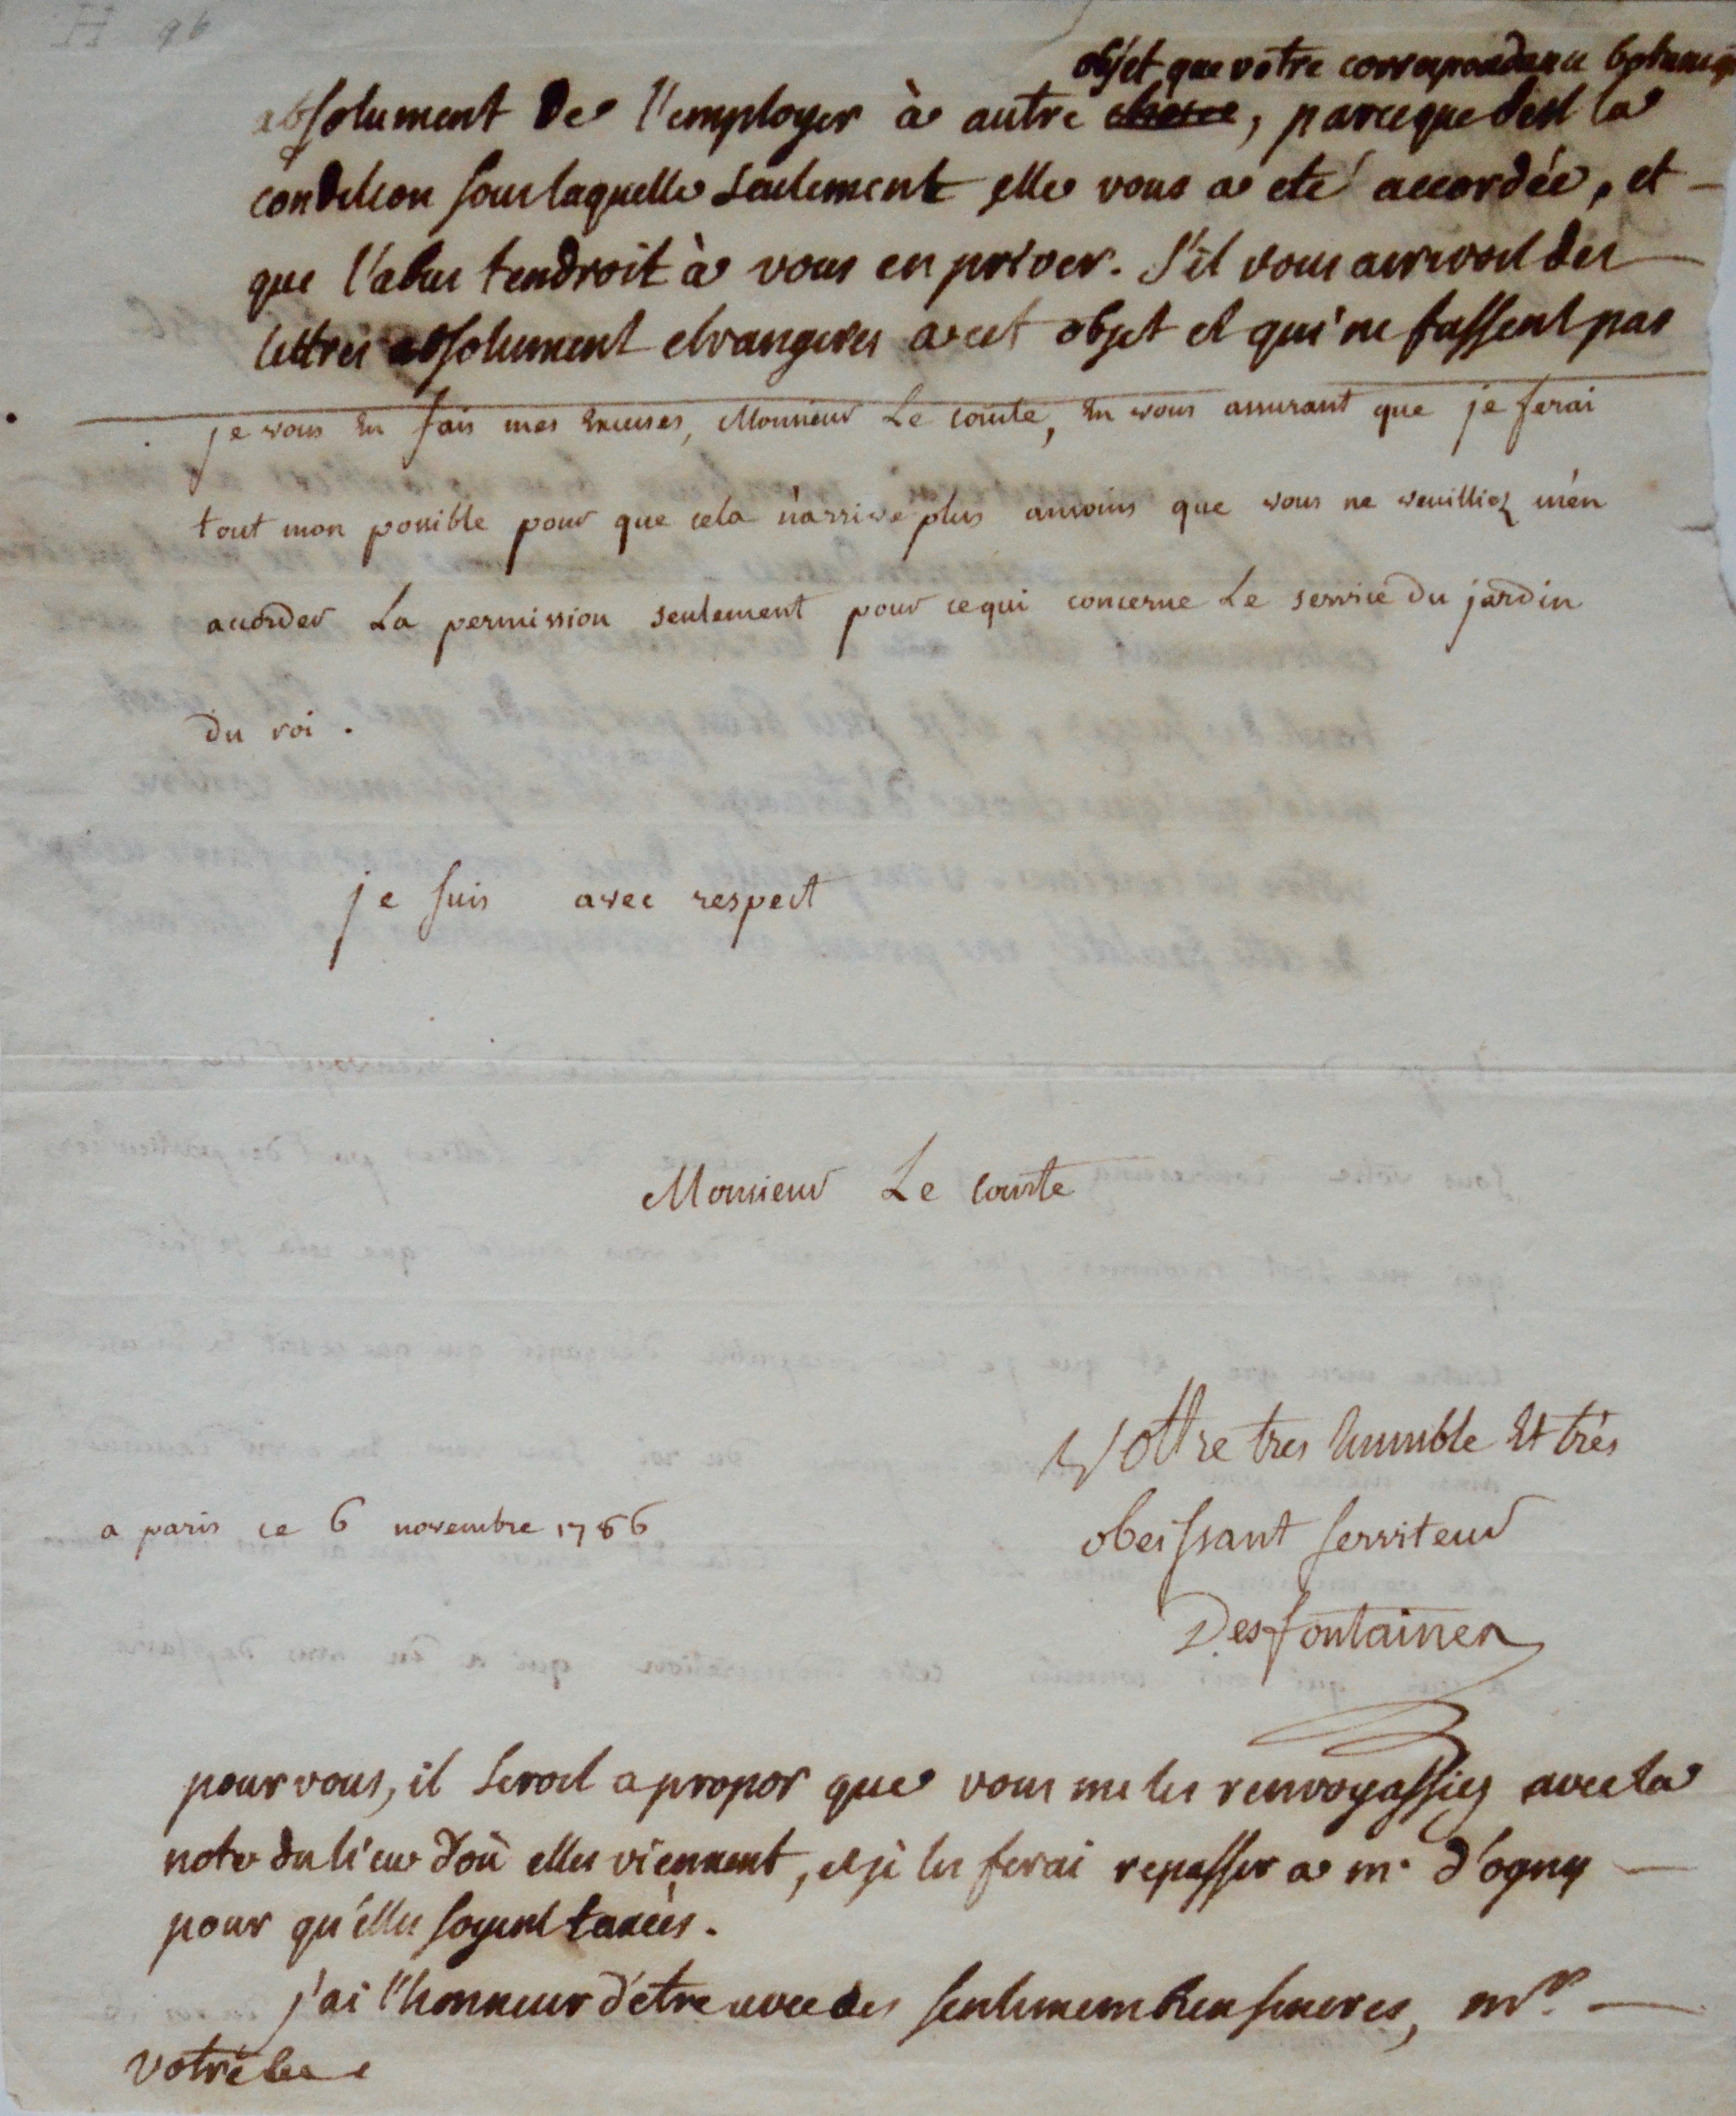 H 96
objet que votre correspondance botanique
absolument de l'employer à autre chose, parceque c'est la
condition sous laquelle seulement elle vous a eté accordée, et
que l'abus tendroit à vous en priver. S'il vous arrivoit des
lettres absolument etrangeres a cet objet et qui ne fussent pas
je vous en fais mes excuses, Monsieur Le comte, en vous assurant que je ferai
tout mon possible pour que cela n'arrive plus amoins que vous ne veuilliez m'en
accorder La permission seulement pour cequi concerne Le service Du jardin
Du roi.
je suis avec respect
Monsieur Le comte
Vottre tres humble Et très
obeissant serviteur
a paris ce 6 novembre 1786
Desfontaines
pour vous, il seroit a propos que vous me les renvoyassiez avec la
note du lieu d'où elles viennent, et je les ferai repasser a m. d'ogny
pour qu'elles soyent taxées.
j'ai l'honneur d'être avec des sentimens bien sinceres, mr.
votre &c